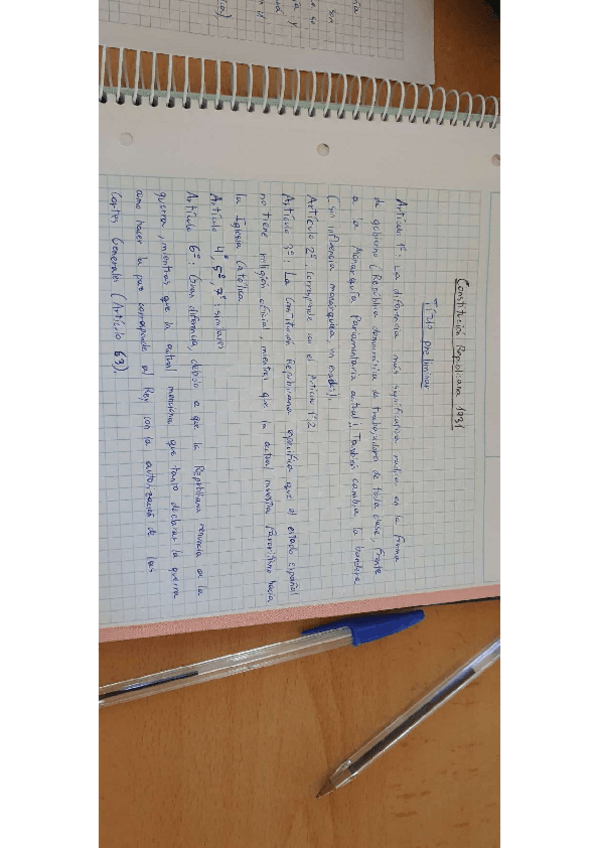 Constitución Republicana 1931
Título preliminar
Artículo 1º: La diferencia más significativa radica en la forma
de gobierno (República democrática de trabajadores de toda clase, frente
a la Monarquía Parlamentaria actual). También cambia la bandera
(sin influencia monárquica, en
Artículo 2º: Corresponde con el Artículo 1.2
Artículo 3º: La Constitución Republicana especifica que el estado español
no tiene religión oficial, mientras que la actual muestra favoritismo hacia
la Iglesia Católica
Artículo 4º, 5º, 7º: similares
Artículo 6º: Gran diferencia, debido a que la Republicana renuncia a la
guerra, mientras que la actual menciona que tanto declarar la guerra
como hacer la paz corresponde al Rey con la autorización de las
Cortes Generales (Artículo 63).